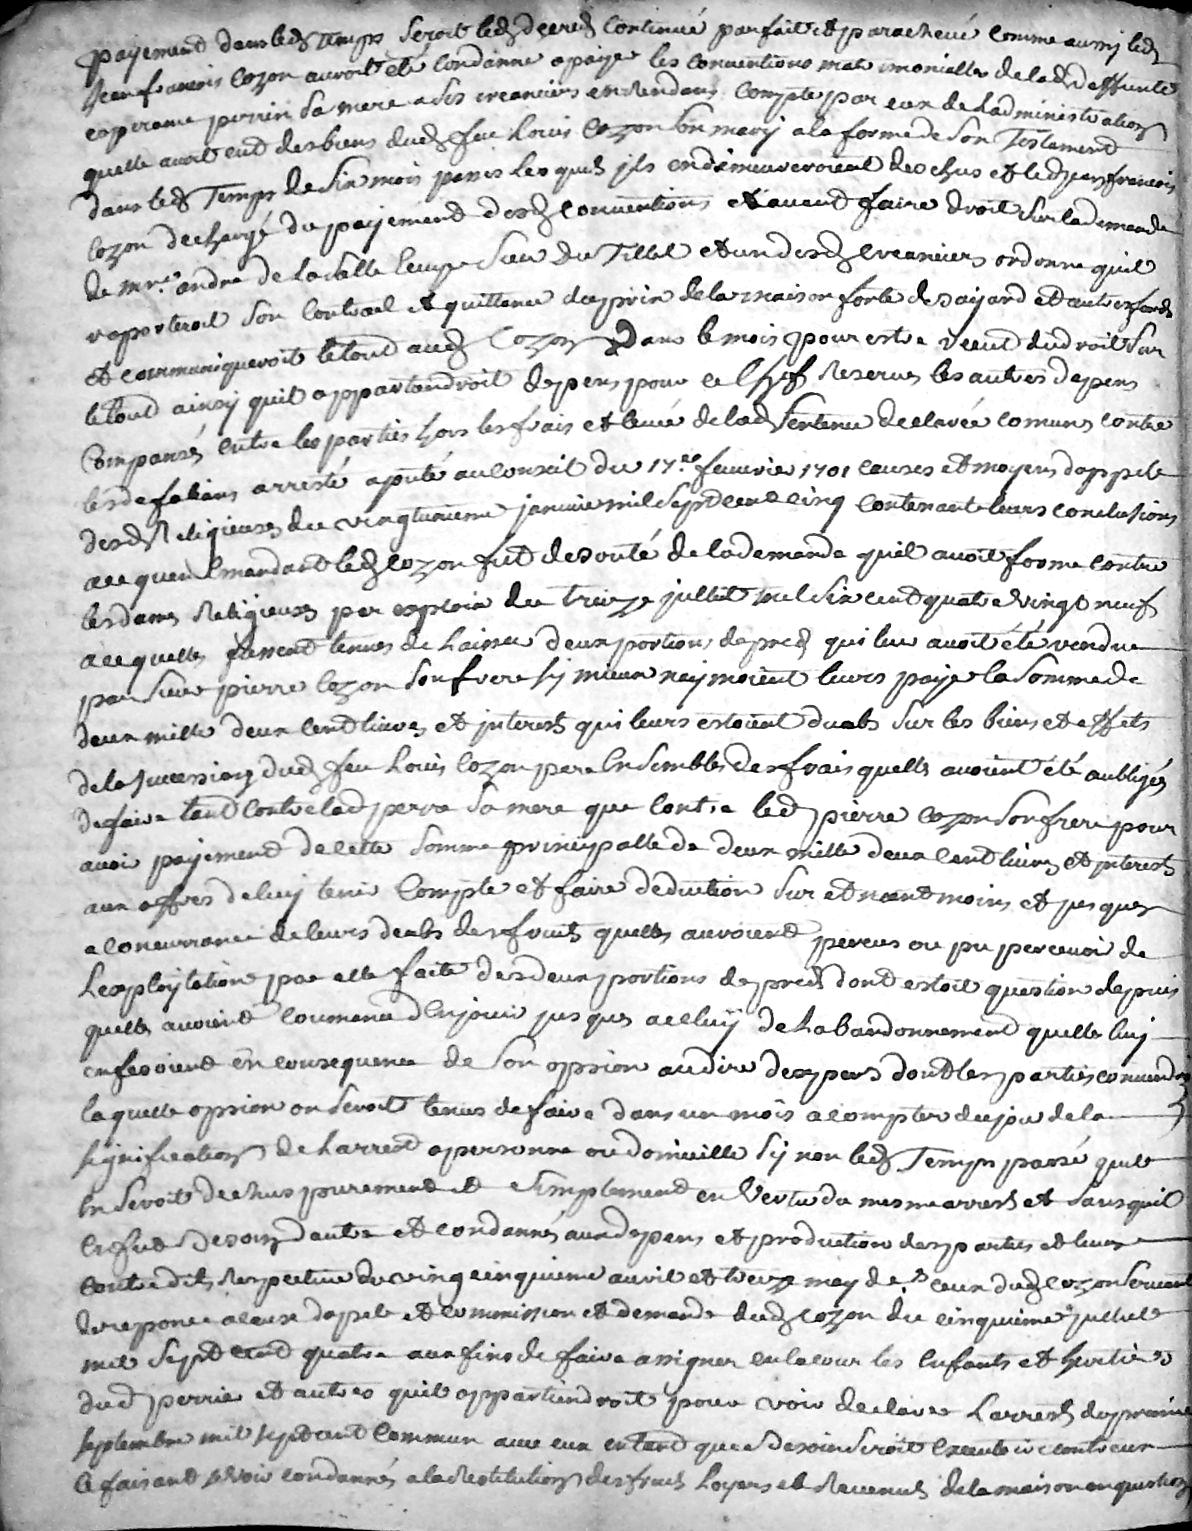 payement dans led temps seroit led decred continué parfait et parachevé comme aussy led
Jean francois Cozon auroit été condanné a paÿer les conventions matrimonialles de lad deffunte
esperance perrin sa mere a ses creanciers en rendant compte par eux de Ladministration
quelle avoit eut des biens dud feu Louis Cozon son mary a la forme de son Testament
dans led Temps de six mois passés lesquels jls en demeureroient dechus et led jean francois
Cozon dechargé du payement desd conventions et avant faire droit sur la demande
de mre andre de Lasalle sieur du Tillet et un desd creanciers ordonne quil
raporteroit son contract et quittance du prix de la maison forte de et autres fonds
et communiqueroit le tout aud Cozon Dans le mois pour estre reçut du droit sur
le tout ainsy quil appartiendroit depens pour ce chef Reservés les autres depens
Compansés entre les parties hors les frais et levée de lad Sentence declarée comune contre
les defalians arresté apointé au conseil du 17.eo feuvrie 1701 causes et moyens dappele
desd Religieuses du vingtunieme janvie mil sept cent cinq contenant leurs conclusions
a ce quen led Cozon fut debouté de la demande quil avoit forme contre
les dames Religieuses par exploix du treize juillet mil six cent quatre vingt neuf
a ce quelles fussent tenues de Laisser deux portions de pred qui luy avoit été vendue
par sieur pierre Cozon son frere sy mieux naymoient leurs payer la somme de
deux mille deux cent livres et jnterests qui leurs estoient dubs sur les biens et effets
de la succession dud feu Louis Cozon pere Ensembles des frais quelles avoient été aubligés
de faire tant contre lad perrin sa mere que contre led pierre Cozon son frere pour
avoir payement de cette somme principalle de deux mille deux cent livres et jnterests
aux offres de luy tenir compte et faire deduction sur et neantmoins et jusques
a concurrance de leurs deubs des fruits quelles auroient perceus ou pu percevoir de
Lexploytation par elle faite des deux portions de pred dont estoit question depuis
quelles avoient commencé dEnjouir jusques a celluy de Labandonnement quelles luy
en feroient en consequence de son opsion au dire dexpers dont les parties conviendroient
laquelle opsion on seroit tenus de faire dans un mois a compter du jour de la
signification de Larrest a personne ou domicille sy non led Temps passé quil
En seroit dechus purement et simplement en Vertu du mesme arrest et sans quil
En fut Besoin dautre et condanné aux depens et production des parties et leurs
contredits Respective du vingt cinquieme avril et treize may de ceux dud Cozon servant
de reponce a cause dapele et commission et demande dud Cozon du cinquieme juillet
mil sept cent quatre aux fins de faire assigner en la cour les Enfants et hertiers
dud perrin et autres quil appartiendroit pour voir declarer Larrest du premier
septembre mil sept cent Commun avec eux en tant que de Besoin seroit Executoire contre eux
Ce faisant se voir condannés a la Restitution des fruits Loyers et Revenus de la maison en question